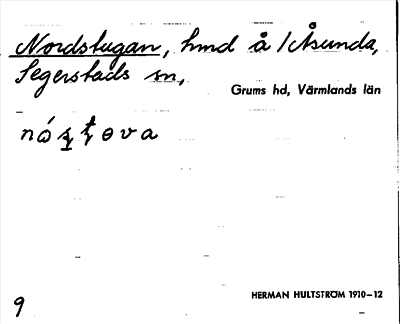 Nordstugan, hmd å /Åsunda,
Segerstads sn,
Grums hd, Värmlands län
HERMAN HULTSTRÖM 1910–12
9